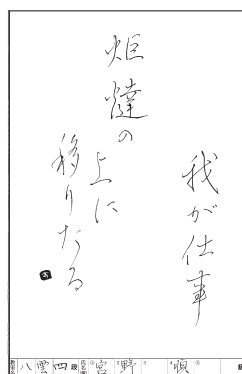 我が仕事
炬燵の
上に
移りたる
八雲 四段 宮野 順